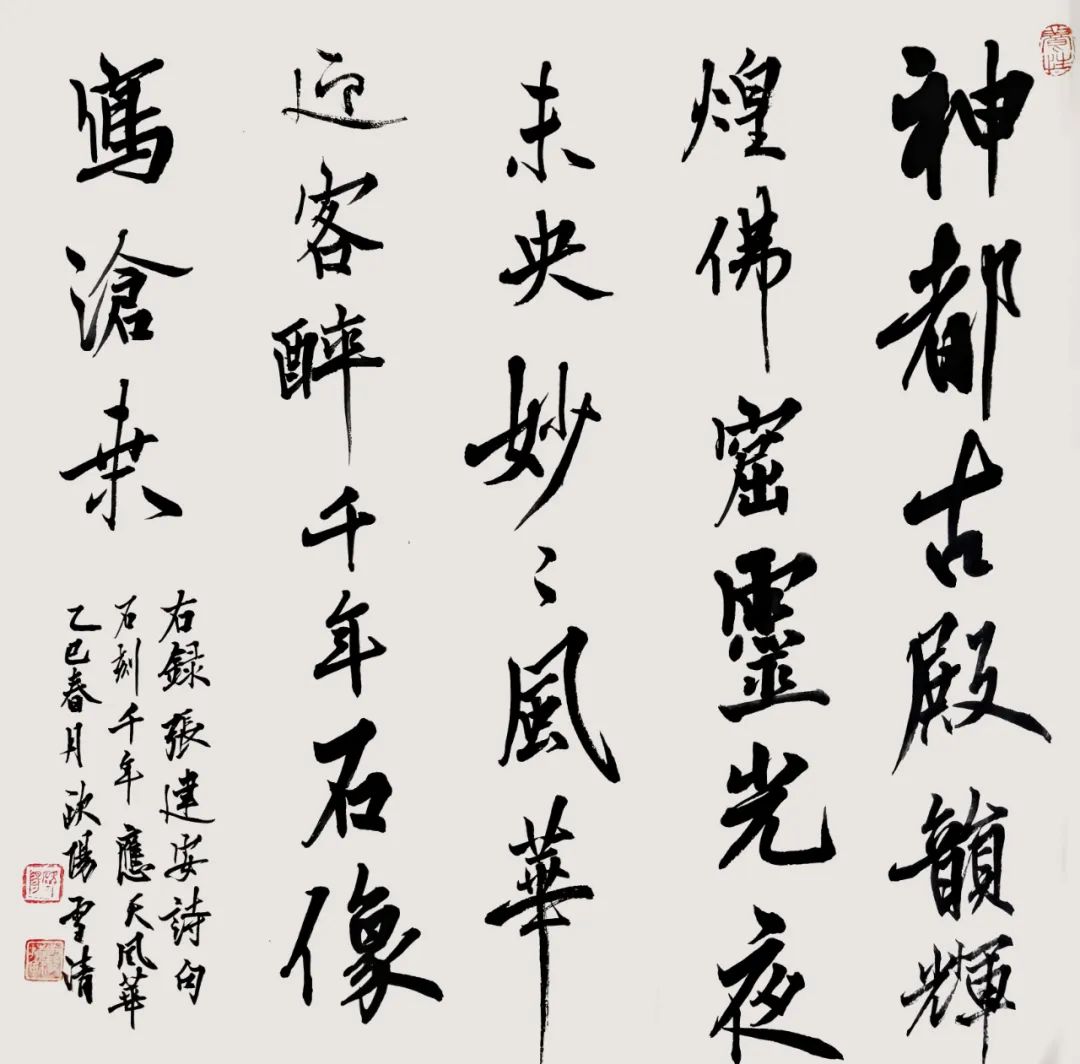 神都古殿韻輝
煌佛窟靈光夜
未央妙〻風華
迎客醉千年石像
寫滄桑
右録張建安詩句
石刻千年應天風華
乙巳春月欧陽雪清